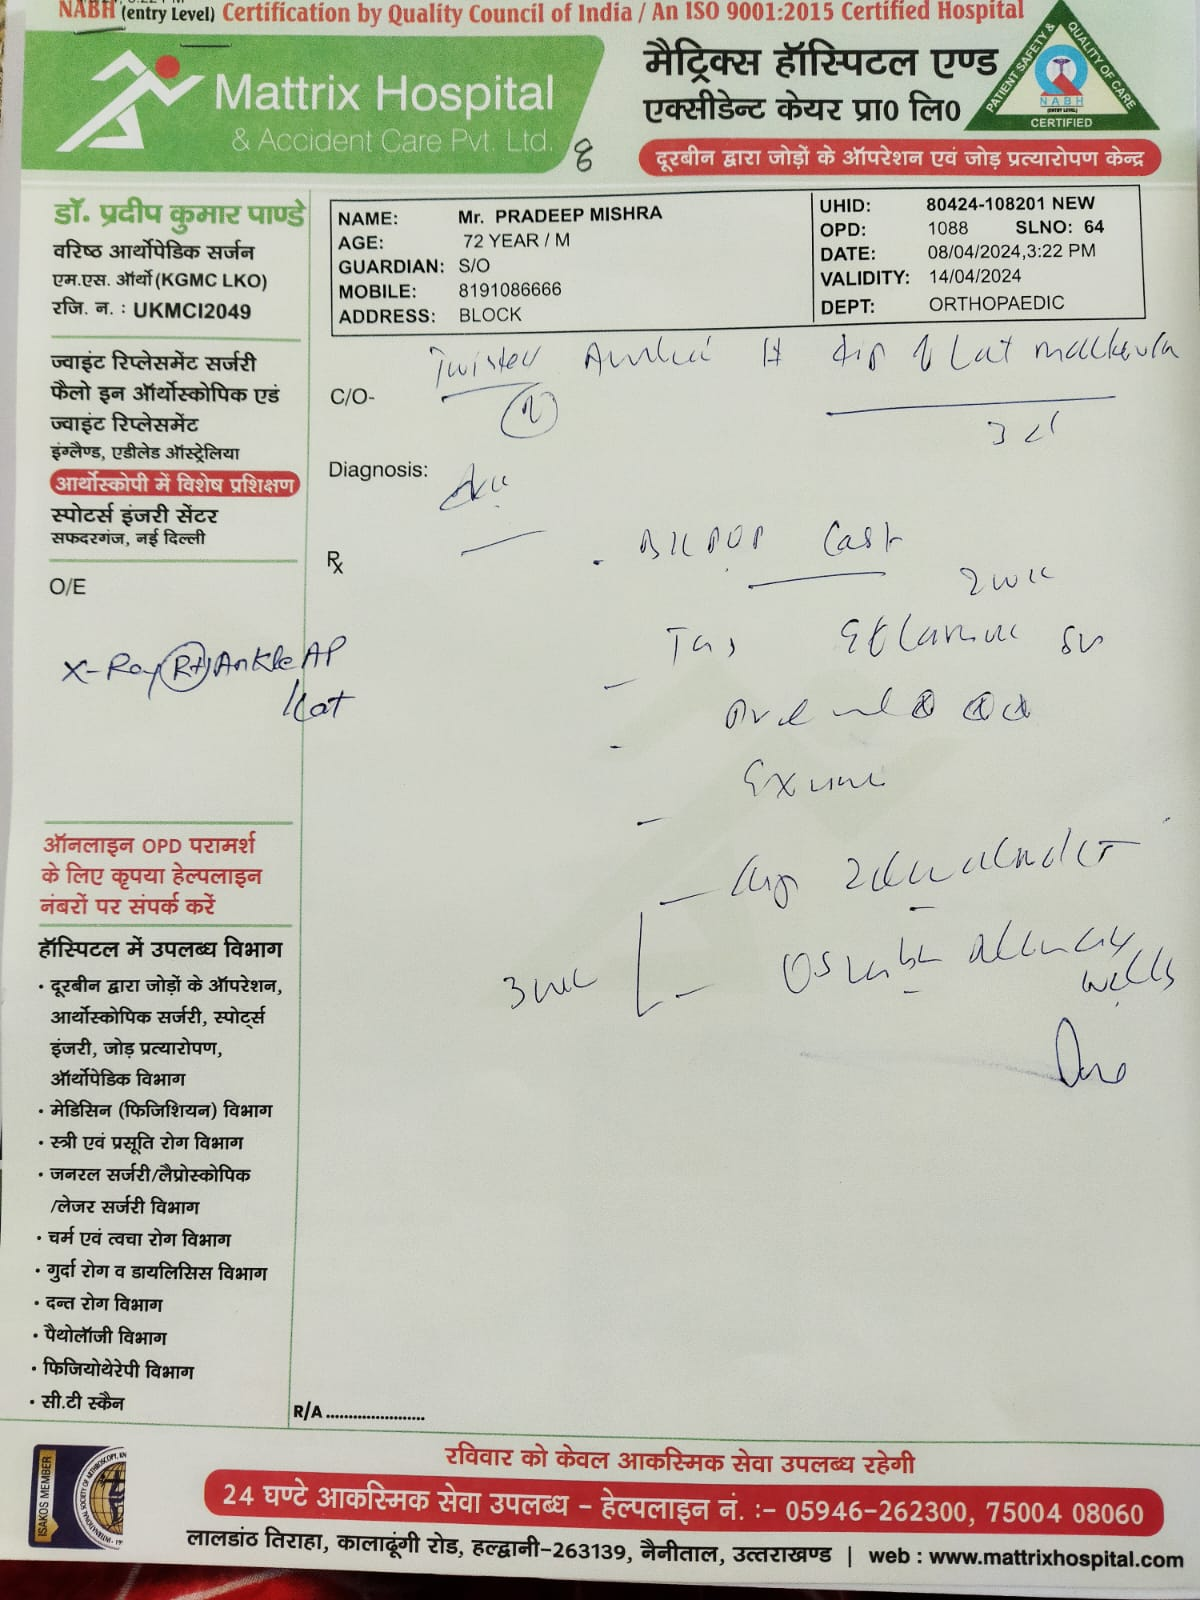 NABH (entry Level) Certification by Quality Council of India / An ISO 9001:2015 Certified Hospital
Mattrix Hospital
& Accident Care Pvt. Ltd.
8
मैट्रिक्स हॉस्पिटल एण्ड
एक्सीडेन्ट केयर प्रा0 लि0
दूरबीन द्वारा जोड़ों के ऑपरेशन एवं जोड़ प्रत्यारोपण केन्द्र
PATIENT SAFETY & QUALITY OF CARE
NABH
CERTIFIED
डॉ. प्रदीप कुमार पाण्डे
वरिष्ठ आर्थोपेडिक सर्जन
एम.एस. ऑर्थो (KGMC LKO)
रजि. न. : UKMCI2049
ज्वाइंट रिप्लेसमेंट सर्जरी
फैलो इन ऑर्थोस्कोपिक एवं
ज्वाइंट रिप्लेसमेंट
इंग्लैण्ड, एडीलेड ऑस्ट्रेलिया
आर्थोस्कोपी में विशेष प्रशिक्षण
स्पोटर्स इंजरी सेंटर
सफदरगंज, नई दिल्ली
O/E
X-Ray Rt Ankle AP
/Lat
ऑनलाइन OPD परामर्श
के लिए कृपया हेल्पलाइन
नंबरों पर संपर्क करें
हॉस्पिटल में उपलब्ध विभाग
• दूरबीन द्वारा जोड़ों के ऑपरेशन,
आर्थोस्कोपिक सर्जरी, स्पोर्ट्स
इंजरी, जोड़ प्रत्यारोपण,
ऑर्थोपेडिक विभाग
• मेडिसिन (फिजिशियन) विभाग
• स्त्री एवं प्रसूति रोग विभाग
• जनरल सर्जरी/लैप्रोस्कोपिक
/लेजर सर्जरी विभाग
• चर्म एवं त्वचा रोग विभाग
• गुर्दा रोग व डायलिसिस विभाग
• दन्त रोग विभाग
• पैथोलॉजी विभाग
• फिजियोथेरेपी विभाग
• सी.टी स्कैन
NAME: Mr. PRADEEP MISHRA
AGE: 72 YEAR / M
GUARDIAN: S/O
MOBILE: 8191086666
ADDRESS: BLOCK
UHID: 80424-108201 NEW
OPD: 1088 SLNO: 64
DATE: 08/04/2024,3:22 PM
VALIDITY: 14/04/2024
DEPT: ORTHOPAEDIC
Twisted # tip of Lat malleola
C/O-
3 d
Diagnosis:
Rx
BK POP Cast
2 wk
Tab
3 wk
R/A
ISAKOS MEMBER
रविवार को केवल आकस्मिक सेवा उपलब्ध रहेगी
24 घण्टे आकस्मिक सेवा उपलब्ध - हेल्पलाइन नं. :- 05946-262300, 75004 08060
लालडांठ तिराहा, कालाढूंगी रोड, हल्द्वानी-263139, नैनीताल, उत्तराखण्ड | web : www.mattrixhospital.com